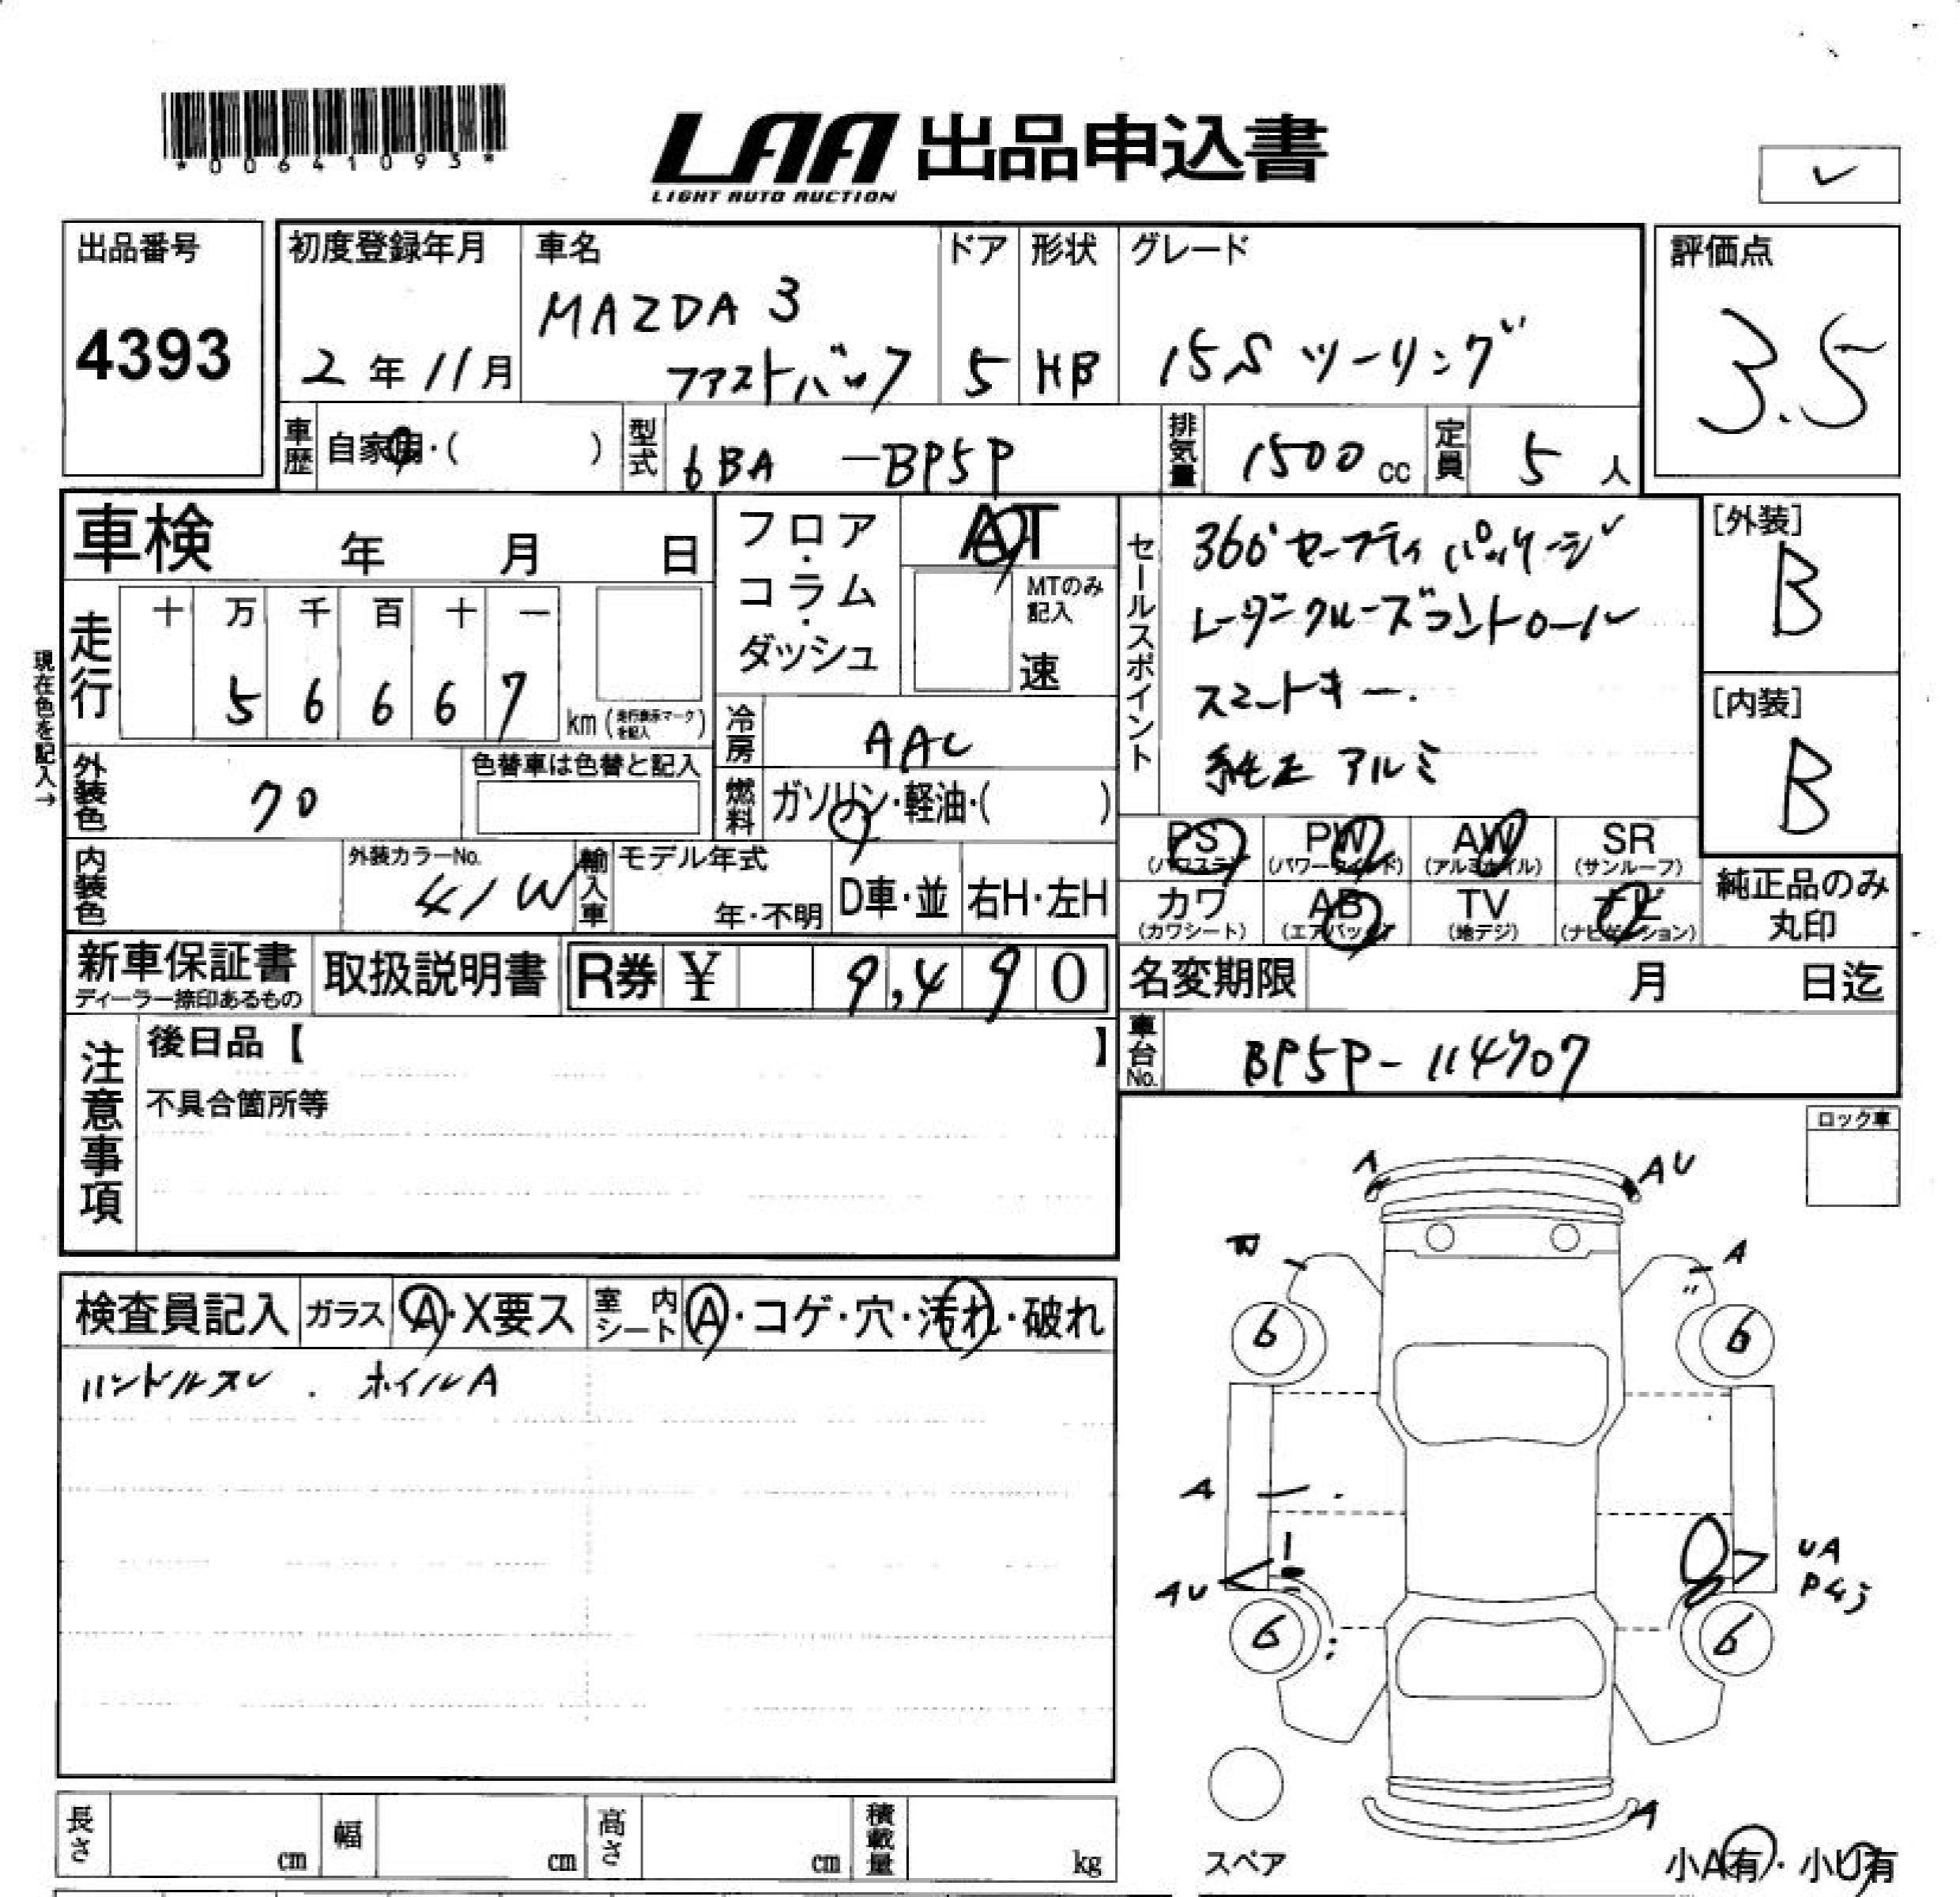 *00641093*
LAA 出品申込書
LIGHT AUTO AUCTION
✓
出品番号
4393
初度登録年月
2年11月
車名
MAZDA 3
ファストバック
ドア
5
形状
HB
グレード
15S ツーリング
評価点
3.5
車歴 自家用・( )
型式 6BA -BP5P
排気量 1500 cc
定員 5 人
車検 年 月 日
フロア・コラム・ダッシュ
AT
MTのみ記入
速
セールスポイント
360°セーフティパッケージ
レーダークルーズコントロール
スマートキー.
純正アルミ
[外装]
B
[内装]
B
現在色を記入→
走行
十 万 千 百 十 一
5 6 6 6 7
km (走行表示マークを記入)
冷房 AAC
外装色 クロ
色替車は色替と記入
燃料 ガソリン・軽油・( )
PS (パワステ)
PW (パワーウインド)
AW (アルミホイル)
SR (サンルーフ)
カワ (カワシート)
AB (エアバック)
TV (地デジ)
ナビ (ナビゲーション)
純正品のみ
丸印
内装色
外装カラーNo.
41W
輸入車
モデル年式
年・不明
D車・並
右H・左H
新車保証書
ディーラー捺印あるもの
取扱説明書
R券 ¥ 9,490
名変期限 月 日迄
車台No. BP5P-114707
注意事項
後日品【 】
不具合箇所等
ロック車
検査員記入
ガラス A・X要ス
室内シート A・コゲ・穴・汚れ・破れ
ハンドルスレ . ホイルA
A
AU
A
〃
6
6
A
AU
UA
P43
6
6
A
スペア
小A有・小U有
長さ cm
幅 cm
高さ cm
積載量 kg